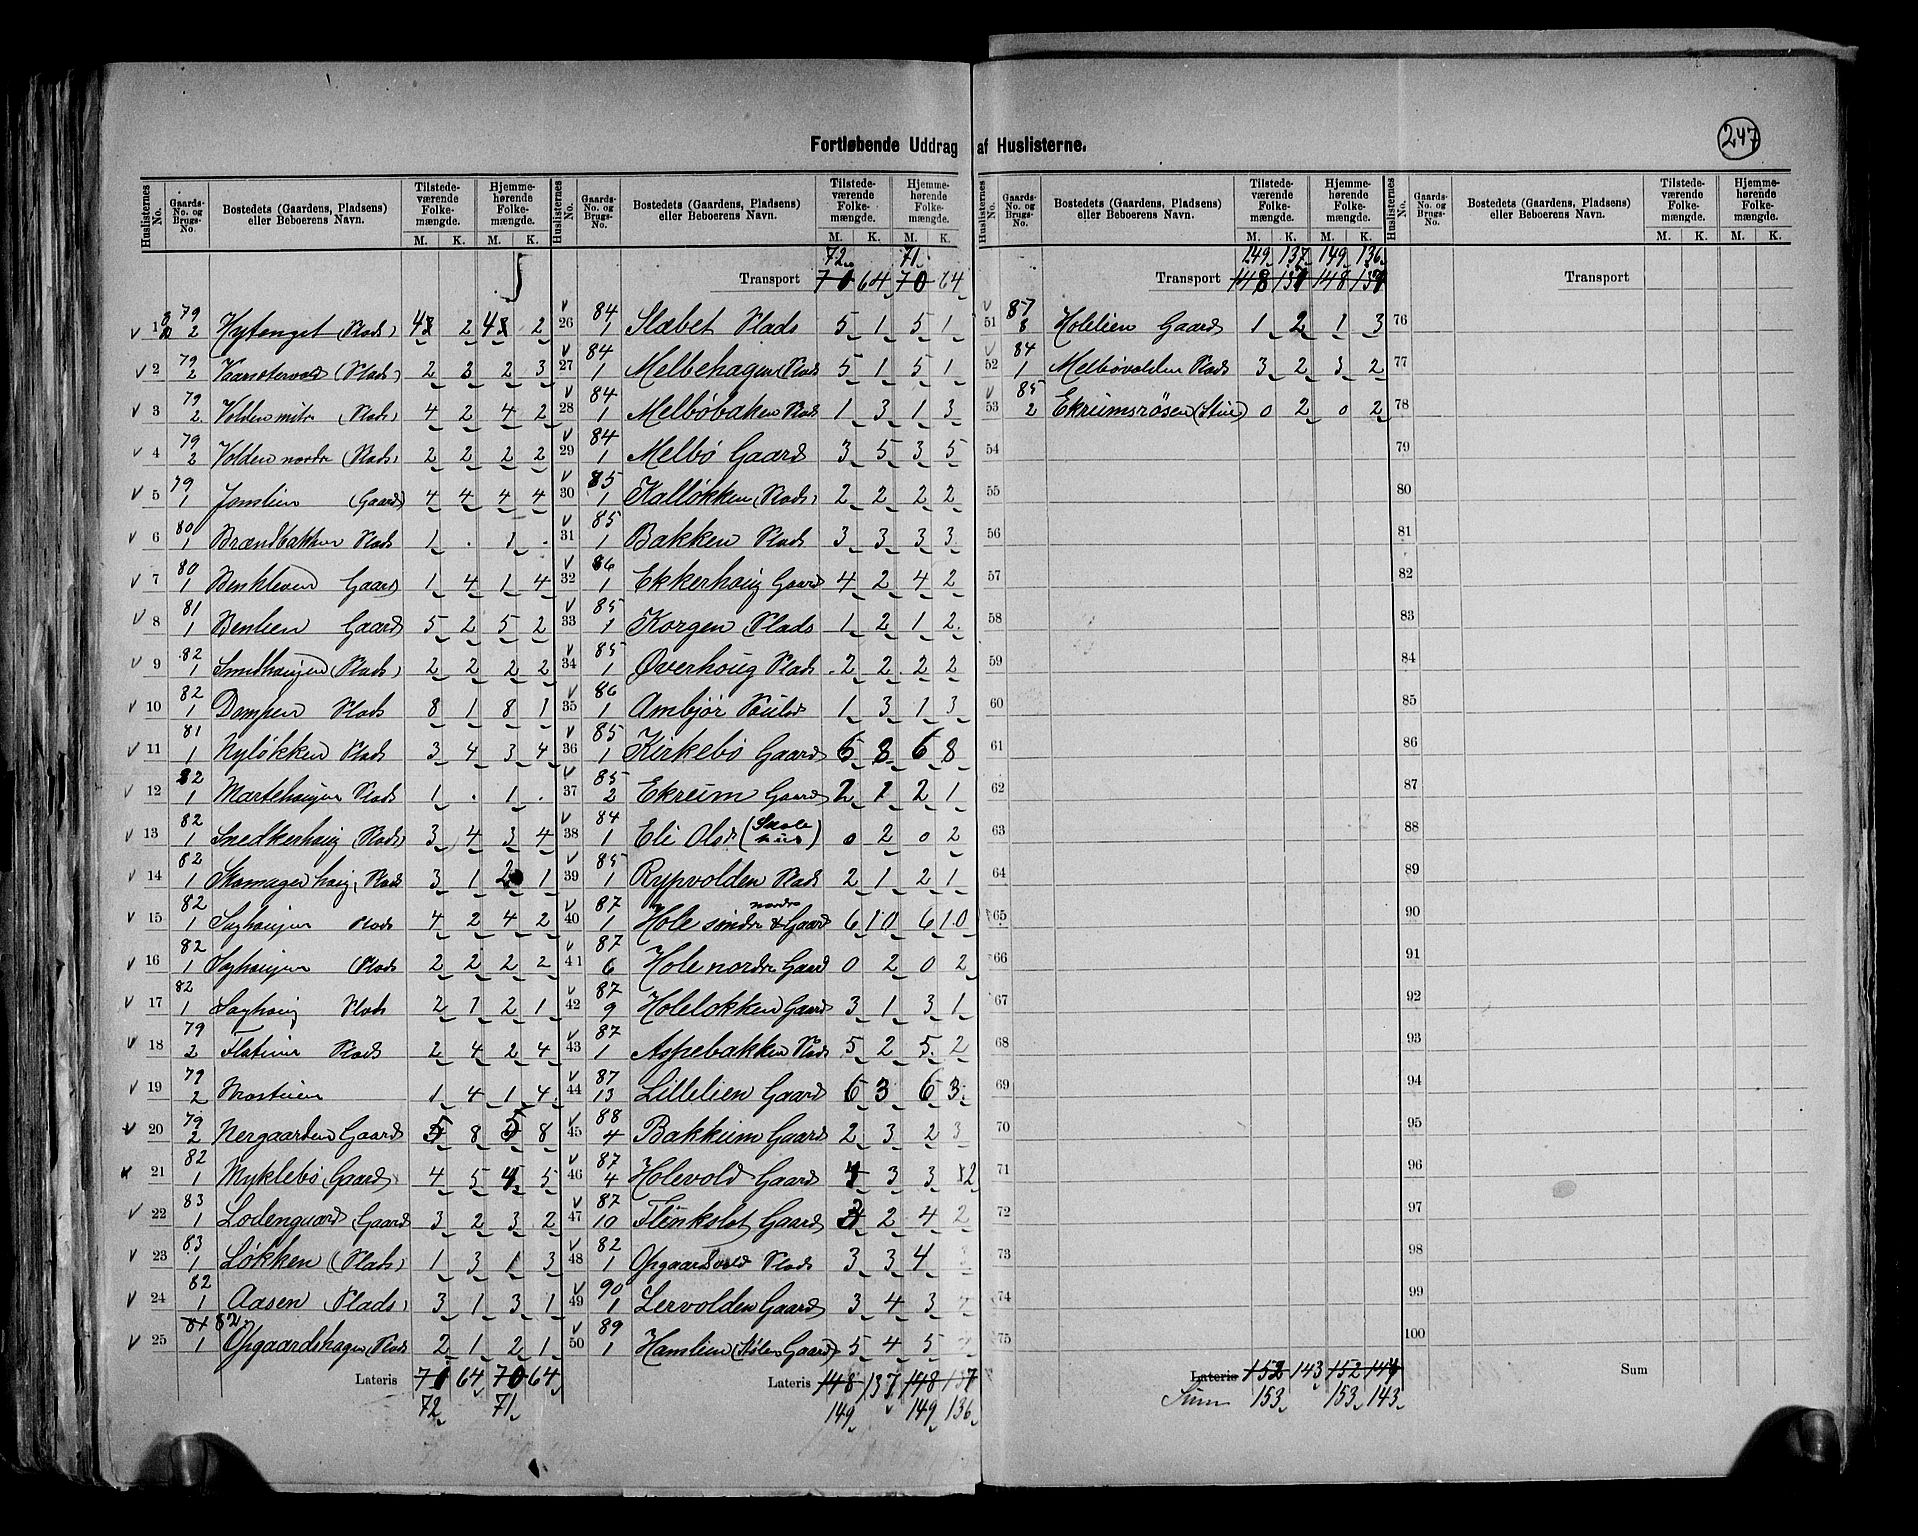 247
Fortløbende Uddrag af Huslisterne.
Huslisternes No. Gaards-No. og Brugs-No. Bostedets (Gaardens, Pladsens) eller Beboerens Navn. Tilstedeværende Folkemængde. M. K. Hjemmehørende Folkemængde. M. K.
1 79 2 (Plads) 2 2
2 79 2 (Plads) 2 2 2 3
3 79 2 Volden (Plads) 4 2 4 2
4 79 2 Volden nordre (Plads) 2 2 2 2
5 79 1 Jamlien (Gaard) 4 4 4 4
6 80 1 Brændbakken Plads 1 . 1 .
7 80 1 Benkleven Gaard 1 4 1 4
8 81 1 Benlien Gaard 5 2 5 2
9 82 1 Smedhaugen (Plads) 2 2 2 2
10 82 1 Dampen Plads 8 1 8 1
11 81 1 Nyløkken Plads 3 4 3 4
12 82 1 Martehaugen Plads 1 . 1 .
13 82 1 Snedkerhaug (Plads) 3 4 3 4
14 82 1 Skomagerhaug, Plads 3 1 2 1
15 82 1 Saghaugen Plads 4 2 4 2
16 82 1 Saghaugen (Plads 2 2 2 2
17 82 1 Saghaug Plads 2 1 2 1
18 79 2 Plads 2 4 2 4
19 79 2 1 4 1 4
20 79 2 Nergaarden Gaard 5 8 5 8
21 82 1 Myklebø Gaard 4 5 4 5
22 83 1 Lodengaard Gaard 3 2 3 2
23 83 1 Løkken (Plads) 1 3 1 3
24 82 1 Aasen (Plads) 3 1 3 1
25 82 1 Opgaardshagen Plads 2 1 2 1
Lateris 70 64 70 64
72 71
Huslisternes No. Gaards-No. og Brugs-No. Bostedets (Gaardens, Pladsens) eller Beboerens Navn. Tilstedeværende Folkemængde. M. K. Hjemmehørende Folkemængde. M. K.
72 71
Transport 70 64 70 64
26 84 1 Slæbet Plads 5 1 5 1
27 84 1 Melbehagen Plads 5 1 5 1
28 84 1 Melbøbakken Plads 1 3 1 3
29 84 1 Melbø Gaard 3 5 3 5
30 85 1 Kalløkken (Plads) 2 2 2 2
31 85 1 Bakken Plads 3 3 3 3
32 86 1 Ekkerhaug Gaard 4 2 4 2
33 85 1 Korgen Plads 1 2 1 2
34 85 1 Øverhoug Plads 2 2 2 2
35 86 1 Ambjør 1 3 1 3
36 85 1 Kirkebø Gaard 6 8 6 8
37 85 2 Ekrum Gaard 2 1 2 1
38 84 1 Eli Olsd (Skolehus) 0 2 0 2
39 85 1 Rypvolden Plads 2 1 2 1
40 87 1 Hole søndre & nordre Gaard 6 10 6 10
41 87 6 Hole nordre Gaard 0 2 0 2
42 87 9 Holeløkken Gaard 3 1 3 1
43 87 1 Aspebakken Plads 5 2 5 2
44 87 13 Lillelien Gaard 6 3 6 3
45 88 4 Bakkum Gaard 2 3 2 3
46 87 4 Holevold Gaard 4 3 3 2
47 87 10 Gaard 3 2 4 2
48 82 1 Opgaardsvold Plads 3 3 4 3
49 90 1 Lervolden Gaard 3 4 3 4
50 89 1 Hamlien Gaard) 5 4 5 4
Lateris 148 137 148 137
149 149 136
Huslisternes No. Gaards-No. og Brugs-No. Bostedets (Gaardens, Pladsens) eller Beboerens Navn. Tilstedeværende Folkemængde. M. K. Hjemmehørende Folkemængde. M. K.
149 137 149 136
Transport 148 148
51 87 8 Holelien Gaard 1 2 1 3
52 84 1 Melbøvolden Plads 3 2 3 2
53 85 2 Ekrumsrøsen (Stue) 0 2 0 2
54
55
56
57
58
59
60
61
62
63
64
65
66
67
68
69
70
71
72
73
74
75
Lateris 152 143 152
Sum 153 153 143
Huslisternes No. Gaards-No. og Brugs-No. Bostedets (Gaardens, Pladsens) eller Beboerens Navn. Tilstedeværende Folkemængde. M. K. Hjemmehørende Folkemængde. M. K.
Transport
76
77
78
79
80
81
82
83
84
85
86
87
88
89
90
91
92
93
94
95
96
97
98
99
100
Sum